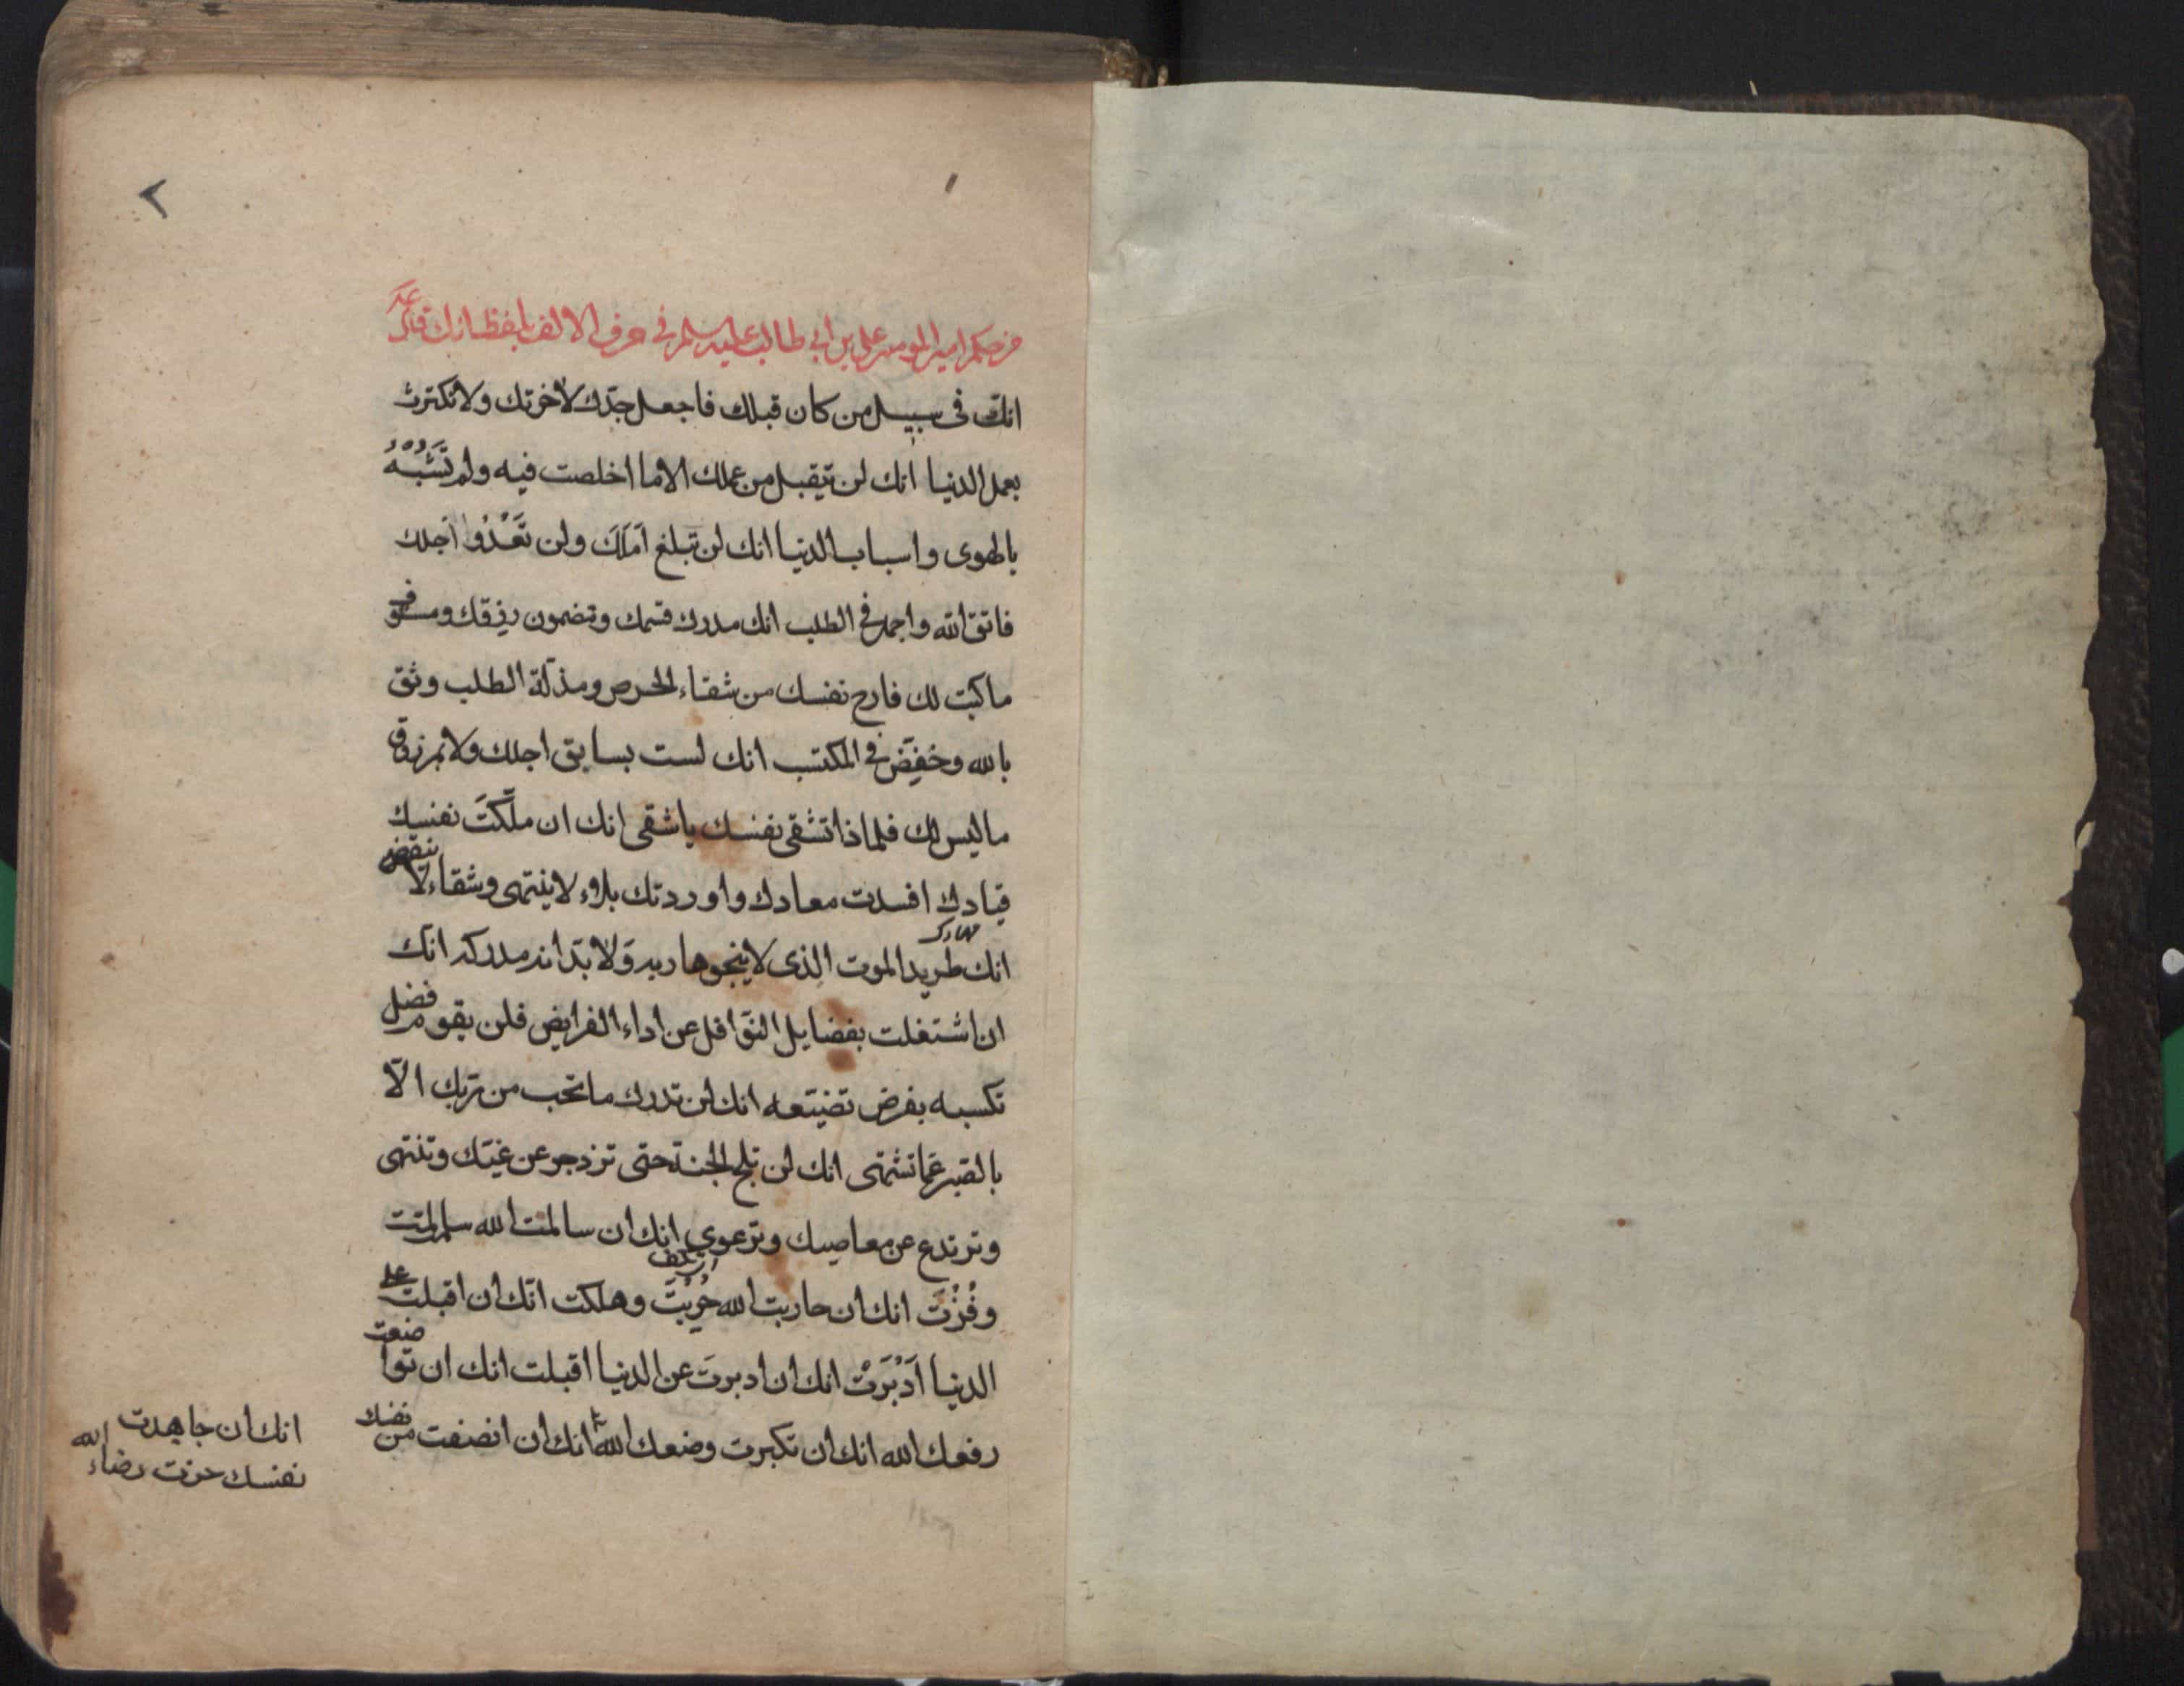 ٢
١
من حكم امير المومنين علي بن ابي طالب عليه السلم في حرف الالف بلفظ انك قال
انك في سبيل من كان قبلك فاجعل جدّك لاخرتك ولا تكترث
بعمل الدنيا انك لن يتقبل من عملك الا ما اخلصت فيه ولم تَشُبْهُ
بالهوى واسباب الدنيا انك لن تبلغ اَمَلَكَ ولن تَعْدُوا اَجلك
فاتق الله واجمل في الطلب انك مدرك قسمك ومضمون رزقك ومستوف
ما كتب لك فارح نفسك من شقاء الحرص ومذلّة الطلب وثق
بالله وخفِّض في المكتسب انك لست بسابق اجلك ولا بمرزوق
ما ليس لك فلماذا تشقى نفسك يا شقى انك ان ملّكتَ نفسك
قيادك افسدت معادك واوردتك بلاء لا ينتهى وشقاء لا ينقضى
انك طريد الموت الذى لا ينجو هاربه ولا بدّ انه مدركه انّك
ان اشتغلت بفضايل النوافل عن اداء الفرايض فلن يقوم فضل
تكسبه بفرض تضيّعه انك لن تدرك ما تحب من ربك الّا
بالصبر عما تشتهى انك لن تلج الجنة حتى تزدجر عن غيّك وتنتهى
وترتدع عن معاصيك وترعوي انك ان سالمت الله سلمت
وفُزْتَ انك ان حاربت الله حُرِبْتَ وهلكت انّك ان اقبلت على
الدنيا اَدْبَرَتْ انك ان ادبرتَ عن الدنيا اقبلت انك ان تواضعت
رفعك الله انك ان تكبرت وضعك الله انك ان انصفت من نفسك
انك ان جاهدت
نفسك حزت رضاء الله